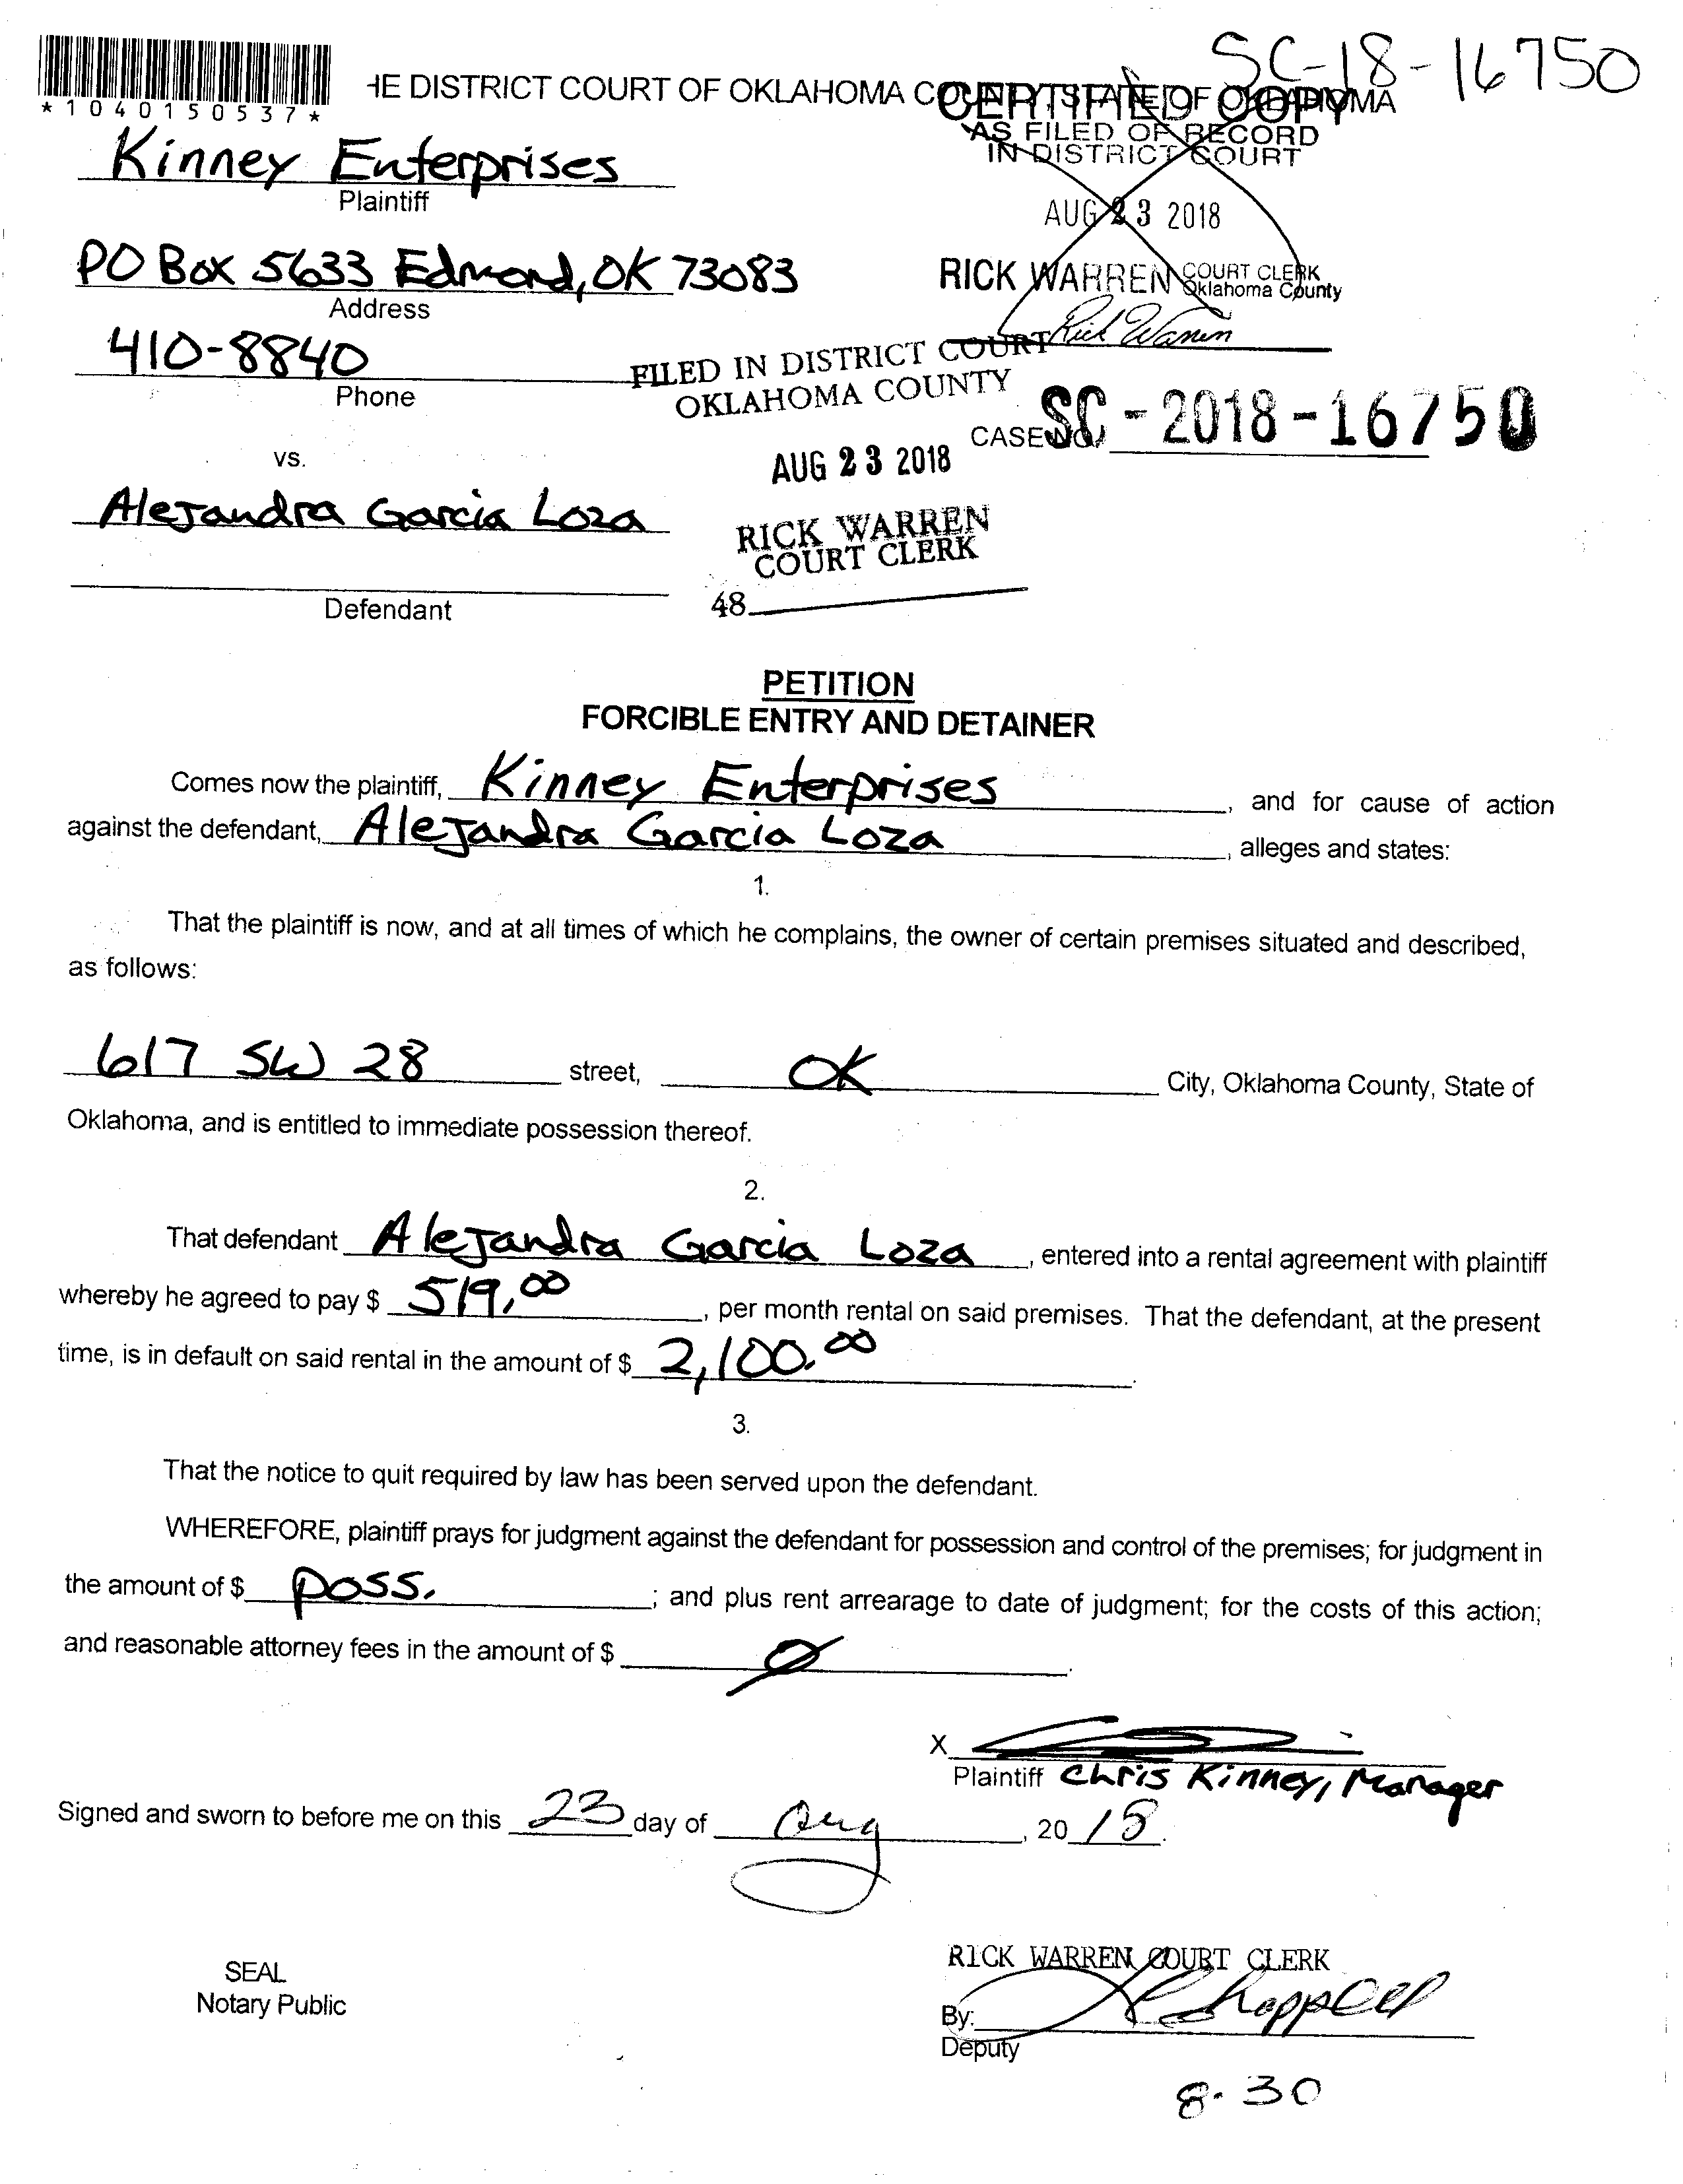 SC-18-16750
*1040150537*
HE DISTRICT COURT OF OKLAHOMA COUNTY STATE OF OKLAHOMA
CERTIFIED COPY
AS FILED OF RECORD
IN DISTRICT COURT
Kinney Enterprises
Plaintiff
AUG 23 2018
PO Box 5633 Edmond, OK 73083
Address
RICK WARREN COURT CLERK
Oklahoma County
Rick Warren
410-8840
Phone
FILED IN DISTRICT COURT
OKLAHOMA COUNTY
CASE NO. SC-2018-16750
vs.
AUG 23 2018
Alejandra Garcia Loza
RICK WARREN
COURT CLERK
Defendant
48
PETITION
FORCIBLE ENTRY AND DETAINER
Comes now the plaintiff, Kinney Enterprises, and for cause of action
against the defendant, Alejandra Garcia Loza, alleges and states:
1.
That the plaintiff is now, and at all times of which he complains, the owner of certain premises situated and described,
as follows:
617 SW 28 street, OK City, Oklahoma County, State of
Oklahoma, and is entitled to immediate possession thereof.
2.
That defendant Alejandra Garcia Loza, entered into a rental agreement with plaintiff
whereby he agreed to pay $ 519.00, per month rental on said premises. That the defendant, at the present
time, is in default on said rental in the amount of $ 2,100.00.
3.
That the notice to quit required by law has been served upon the defendant.
WHEREFORE, plaintiff prays for judgment against the defendant for possession and control of the premises; for judgment in
the amount of $ poss.; and plus rent arrearage to date of judgment; for the costs of this action;
and reasonable attorney fees in the amount of $ Ø.
X
Plaintiff Chris Kinney, Manager
Signed and sworn to before me on this 23 day of Aug, 2018.
SEAL
Notary Public
RICK WARREN COURT CLERK
By:
Deputy
8-30